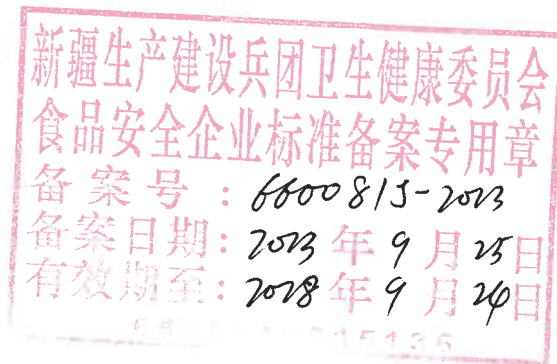 新疆生产建设兵团卫生健康委员会
食品安全企业标准备案专用章
备案号：660081S-2023
备案日期：2023年9月25日
有效期至：2028年9月24日